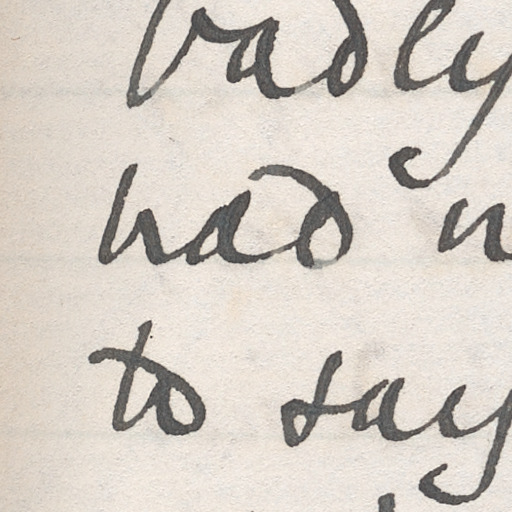 badly
had
to say